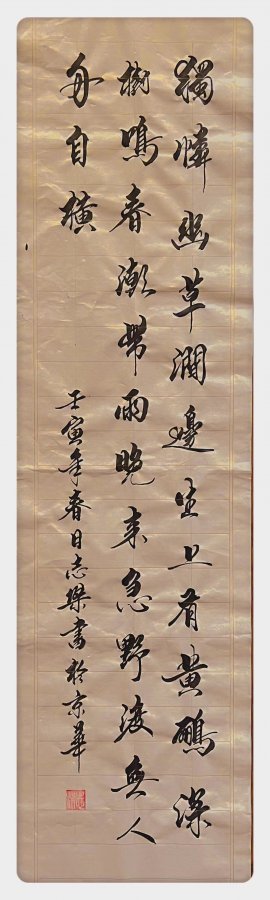 獨憐幽草澗邊生上有黄鸝深
樹鳴春潮帶雨晚来急野渡無人
舟自横
壬寅年春日志樂書於京華